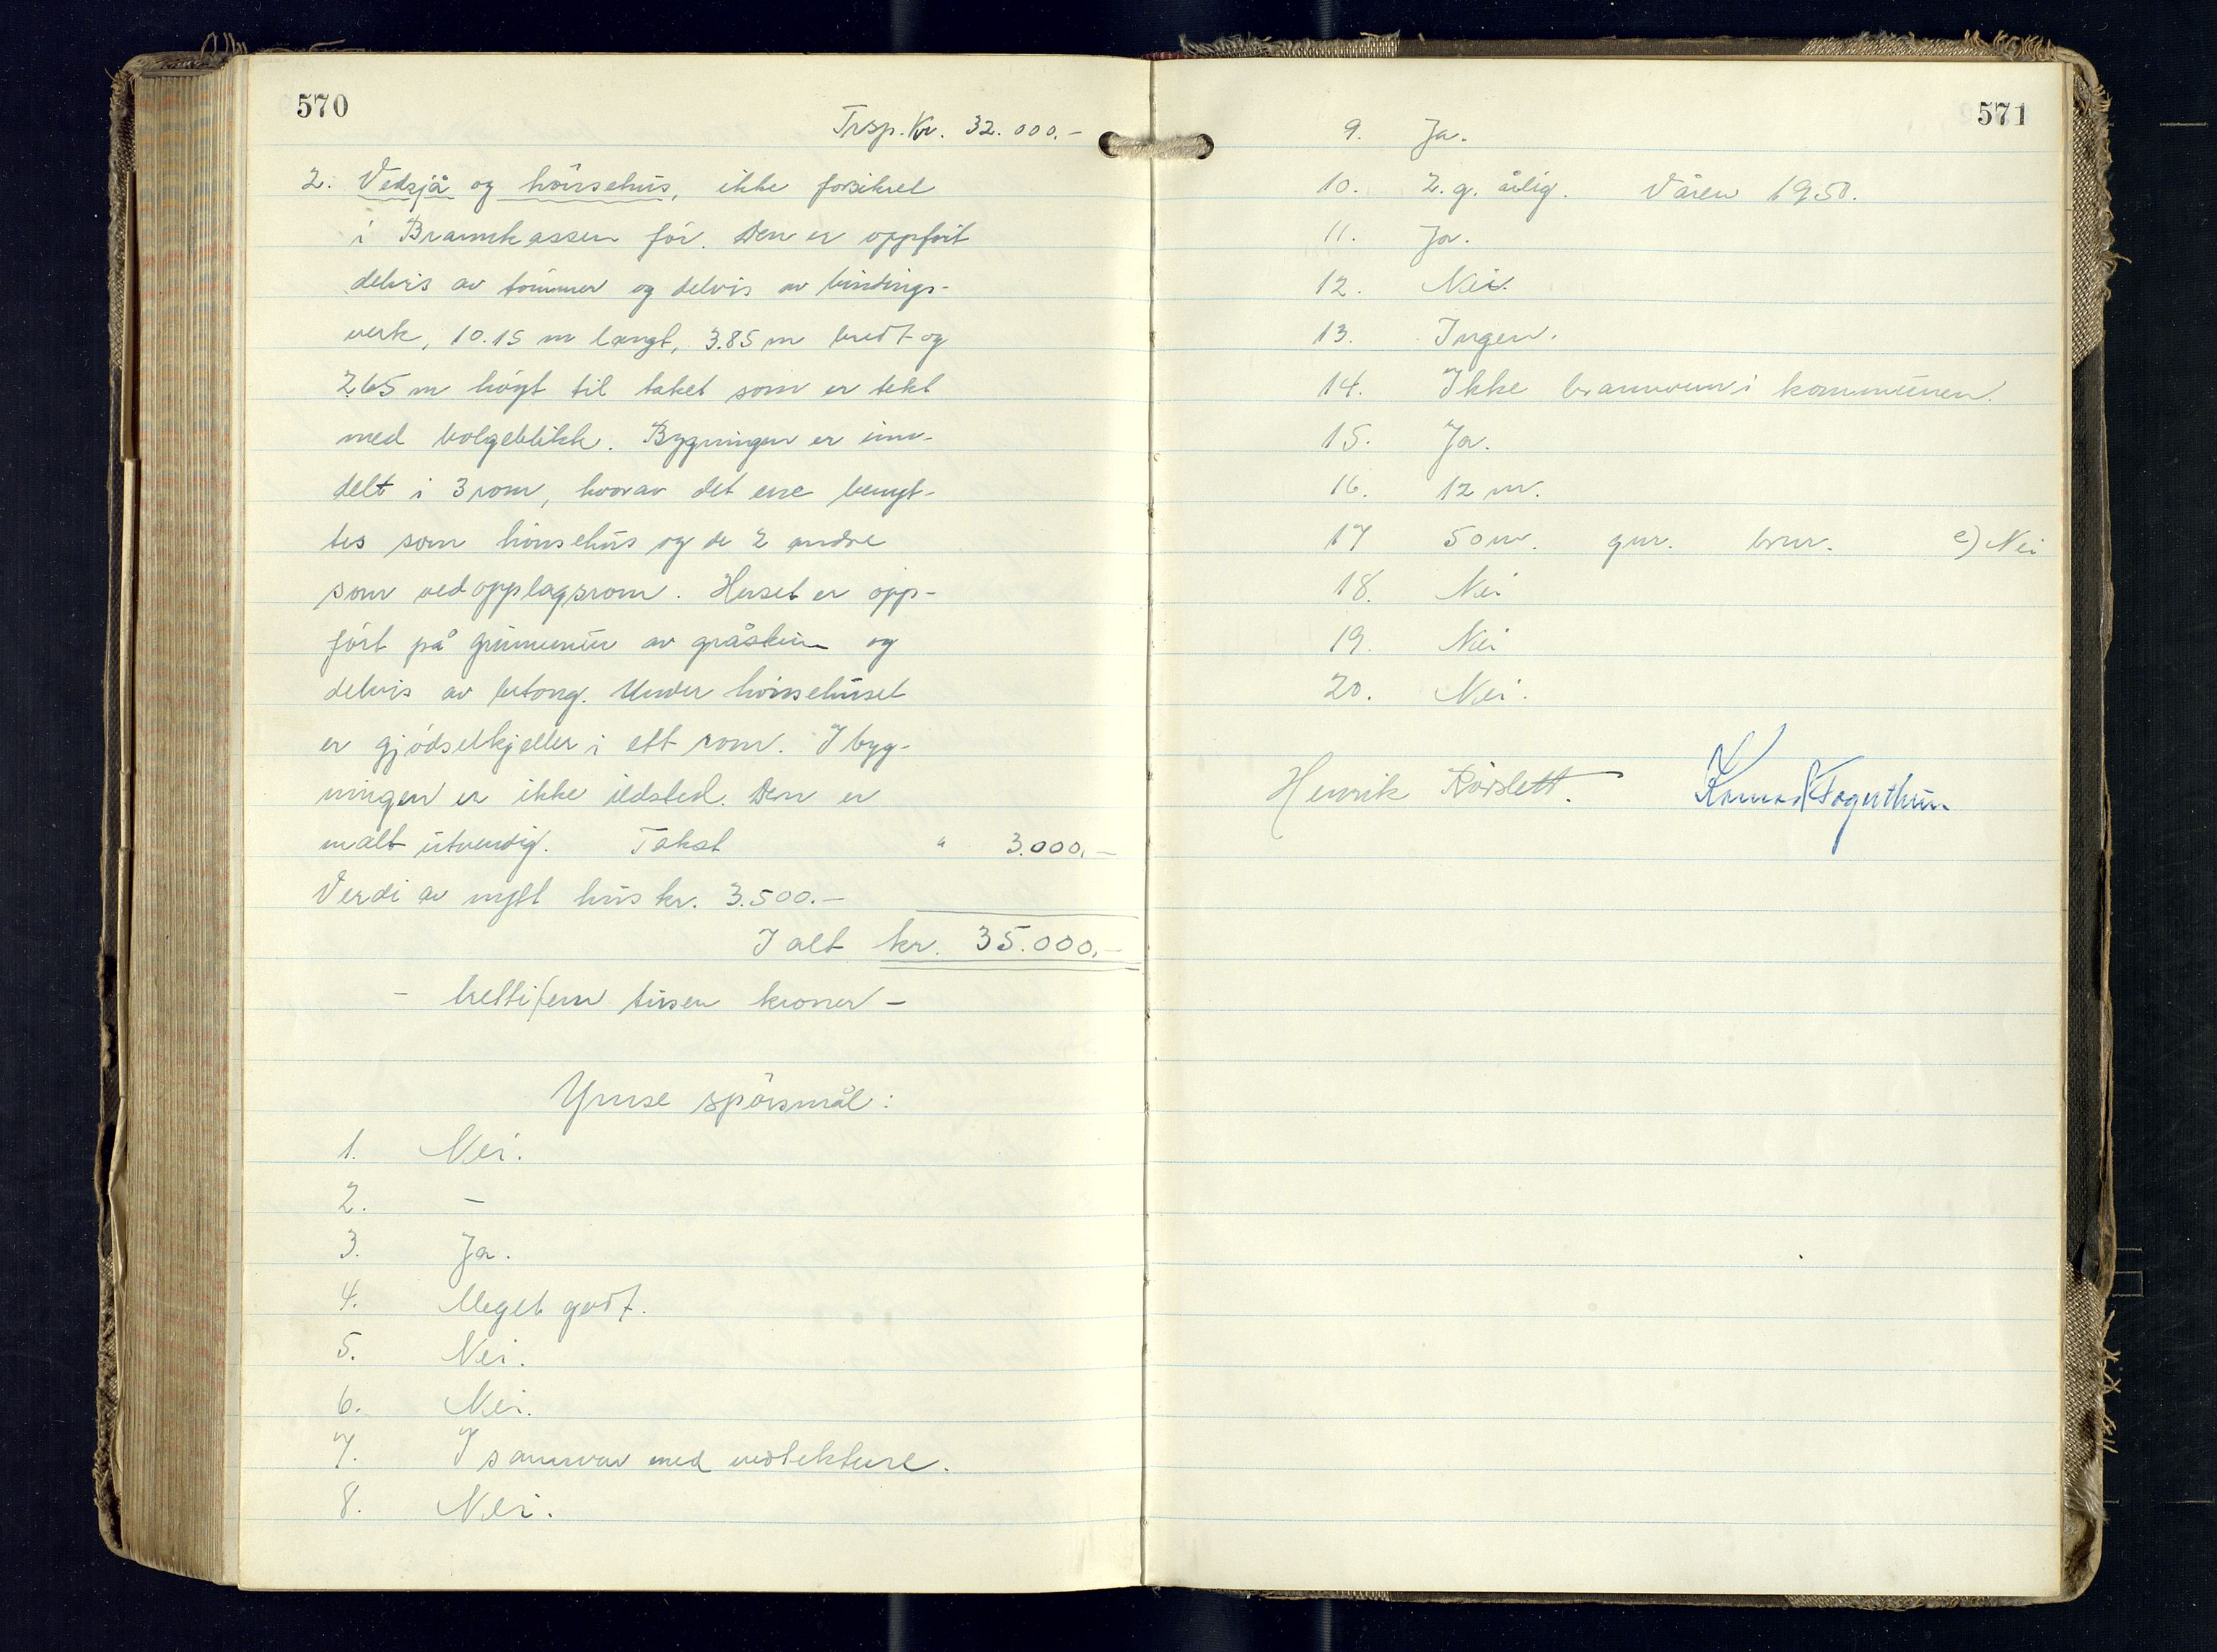 570
Trsp. Kr. 32.000.-
2. Vedsjå og hönsehus, ikke forsikret
i Brannkassen för. Den er oppfört
delvis av tömmer og delvis av bindings-
verk, 10.15 m langt, 3.85 m bredt og
2.65 m högt til taket som er tekt
med bolgeblikk. Bygningen er inn-
delt i 3 rom, hvorav det ene benyt-
tes som hönsehus og de 2 andre
som vedopplagsrom. Huset er opp-
fört på grunnmur av gråstein og
delvis av betong. Under hönsehuset
er gjödselkjeller i ett rom. I byg-
ningen er ikke ildsted. Den er
malt utvendig. Takst " 3.000.-
Verdi av nytt hus kr. 3.500.-
I alt kr. 35.000.-
- trettifem tusen kroner -
Ymse spörsmål:
1. Nei.
2. -
3. Ja.
4. Meget godt.
5. Nei.
6. Nei.
7. I samsvar med vedtektene.
8. Nei.
571
9. Ja.
10. 2. g. årlig. Våren 1950.
11. Ja.
12. Nei.
13. Ingen.
14. Ikke brannvern i kommunen.
15. Ja.
16. 12 m.
17 50 m. gnr. brnr. e) Nei
18. Nei
19. Nei
20. Nei.
Henrik Rörslett. Konrad Fagerthun